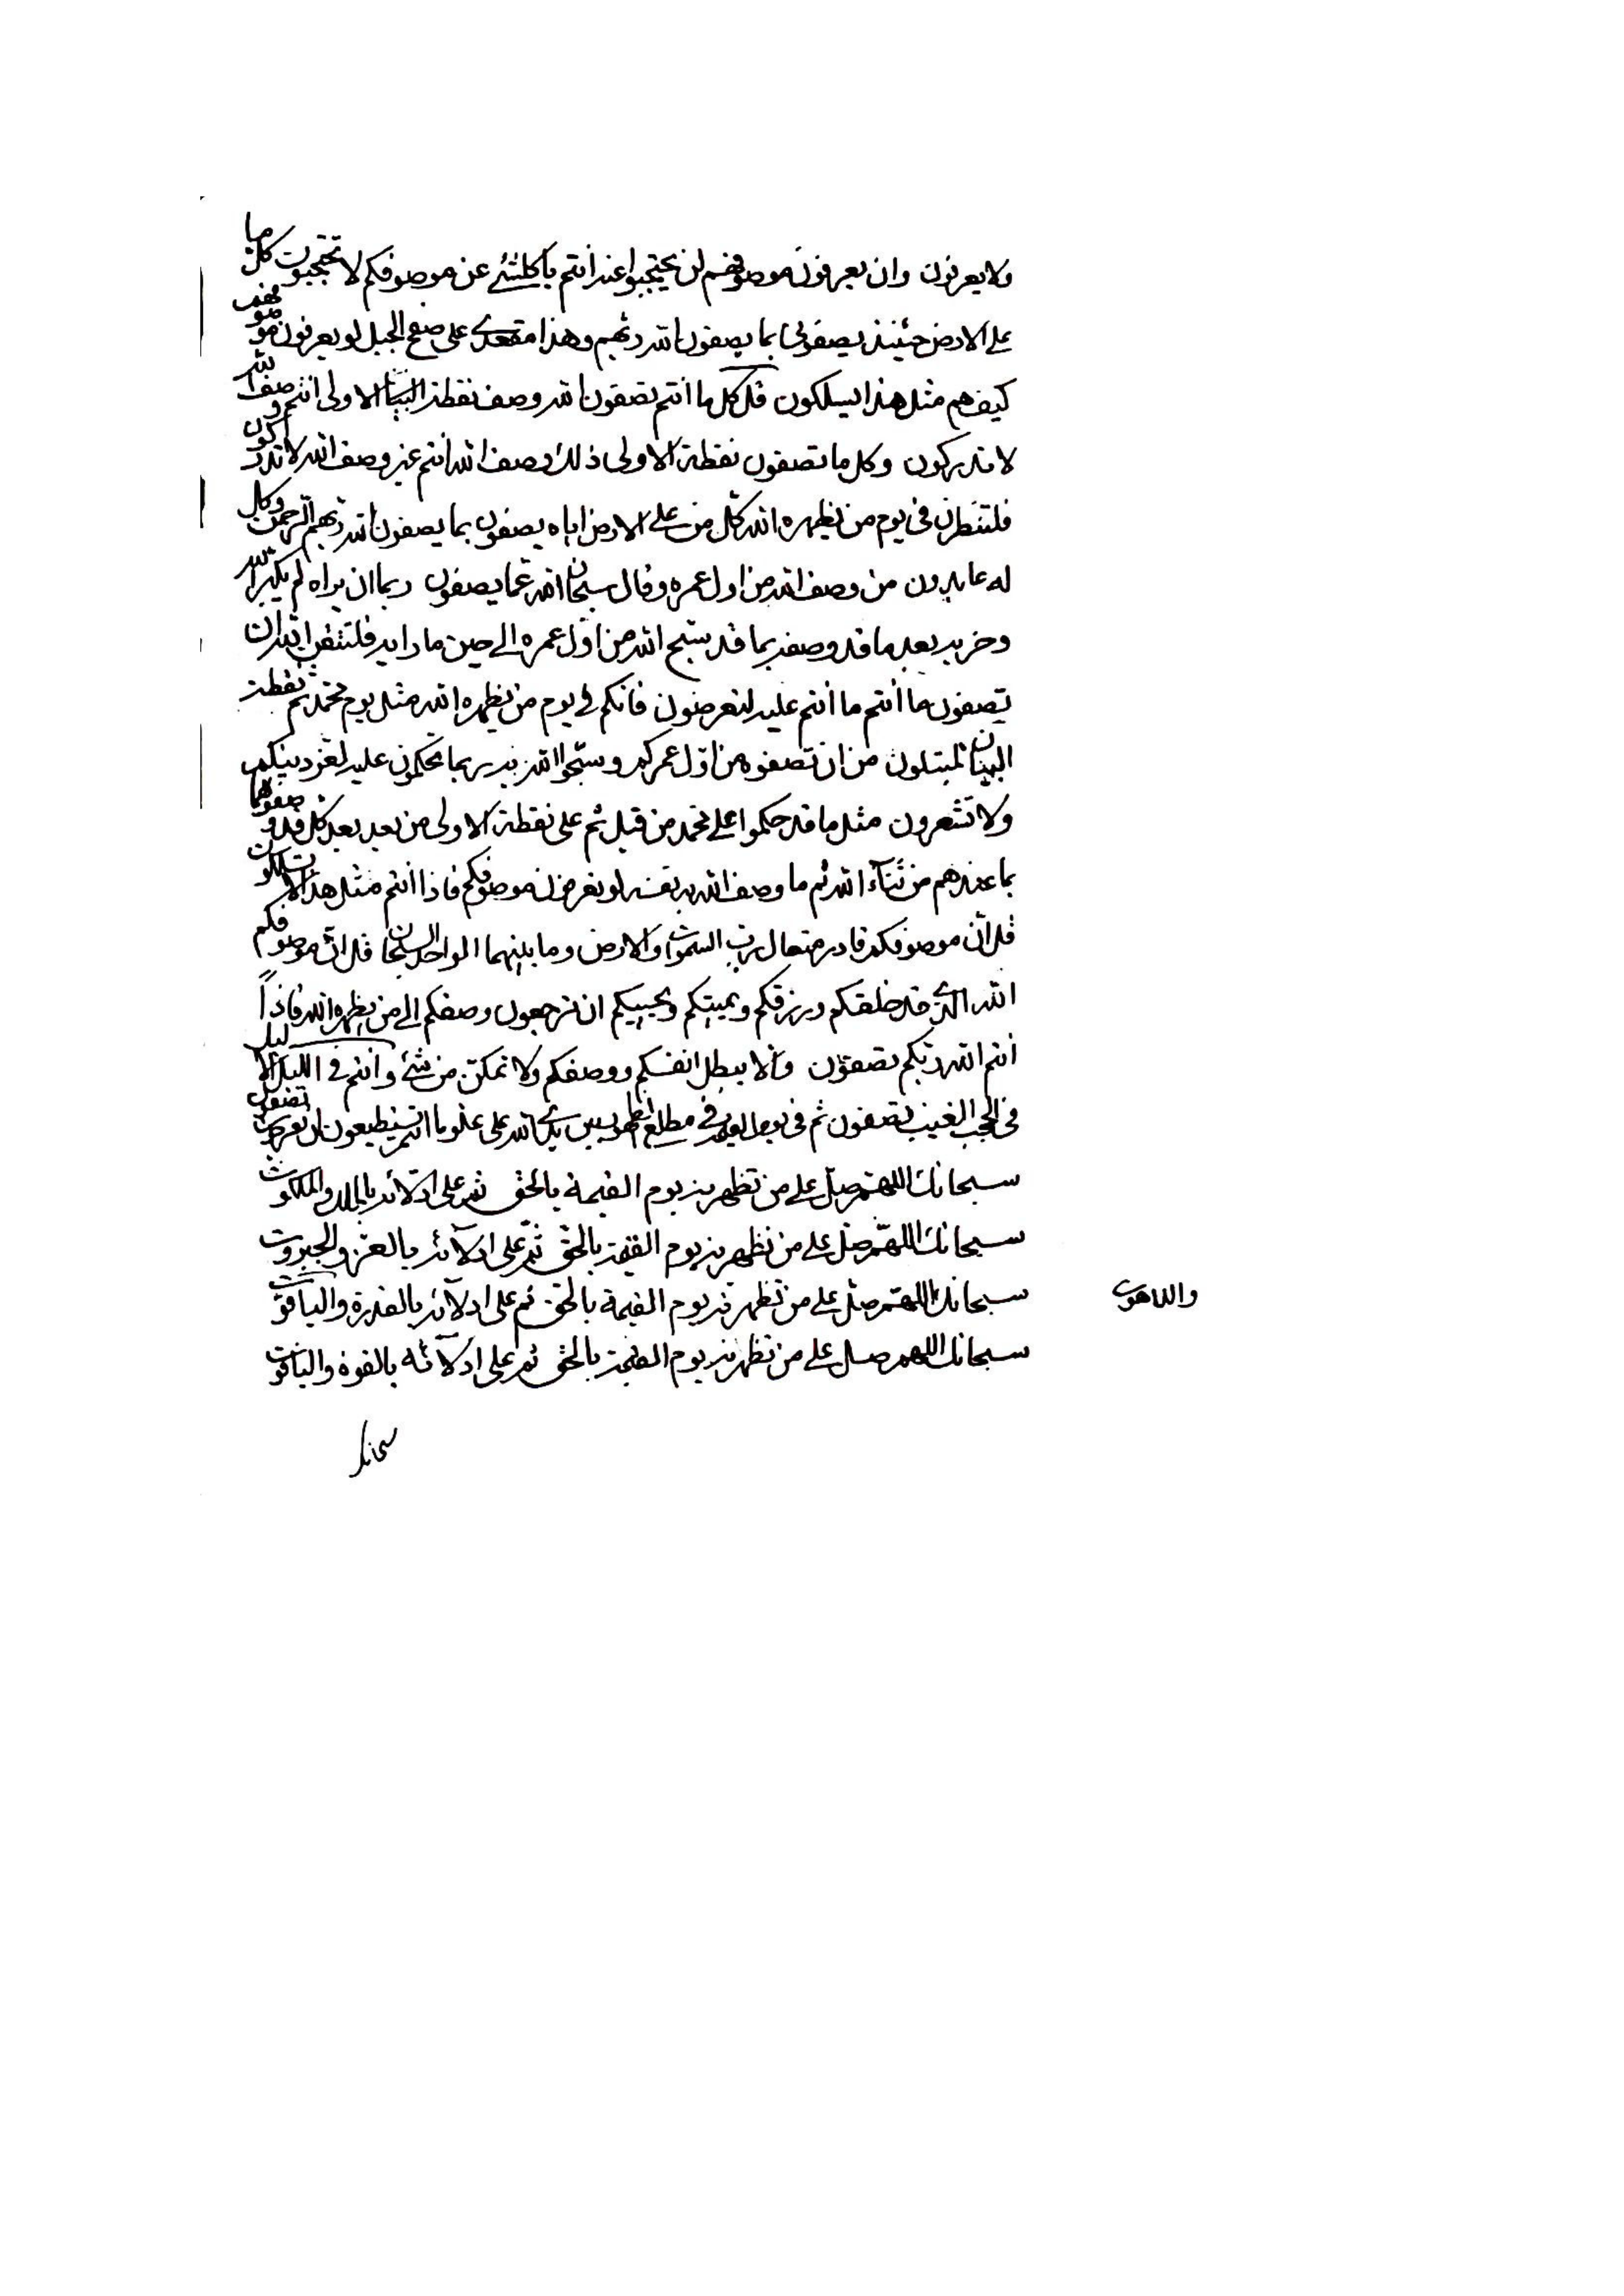 ولا يعرفون وان يعرفون موصوفهم لن يحتجبوا عنه انتم يا كلشئ عن موصوفكم لا تحتجبون كل ما
على الارض حينئذ يصفونى بما يصفون الله ربهم وهذا مقعدى على صفح الجبل لو يعرفون موصوفهم
كيف هم مثل هذا يسلكون قل كل ما انتم تصفون الله وصف نقطة البيان الاولى انتم وصف الله
لا تدركون وكل ما تصفون نقطة الاولى ذلك وصف الله انتم عن وصف الله لا تدركون
فلتنظرن فى يوم من يظهره الله كل من على الارض اياه يصفون بما يصفون الله ربهم الرحمن وكل
له عابدون من وصف الله من اول عمره وقال سبحان الله عما يصفون ربما ان يراه لم يكبر الله
بعد ما قد وصفه بما قد سبح الله من اول عمره الى حين ما رايه فلتتقن الله ان
تصفون ما انتم ما انتم عليه لتعرضون فانكم فى يوم من يظهره الله مثل يوم محمد ثم نقطة
البيان لمبتلون من ان تصفوه من اول عمركم وسبحوا الله به بما تحكمون عليه لغير دينكم
ولا تشعرون مثل ما قد حكموا على محمد من قبل ثم على نقطة الاولى من بعد بعد كل قد وصفوهما
بما عندهم من ثناء الله ثم ما وصف الله به نفسه لو تعرفن موصوفكم فاذا انتم مثل هذا لا تسلكون
قل ان موصوفكم قادر متعال رب السموات والارض وما بينهما الواحد السبحان قل ان موصوفكم
الله الذى قد خلقكم ورزقكم ويميتكم ويحييكم ان ترجعون وصفكم الى من يظهره الله فاذاً
انتم الله ربكم تصفون والا يبطل انفسكم ووصفكم ولا تمكن من شئ وانتم فى الليل الاليل
فى الحجب الغيب تصفون ثم فى يوم الظهور فى مطلع الظهور بين يدى الله على علو ما انتم تستطيعون ان تعرجون تصفون
سبحانك اللهم صل على من تظهرنه يوم القيمة بالحق ثم على ادلائه بالملك والملكوت
سبحانك اللهم صل على من تظهرنه يوم القيمة بالحق ثم على ادلائه بالعز والجبروت
سبحانك اللهم صل على من تظهرنه يوم القيمة بالحق ثم على ادلائه بالقدرة والياقوت
واللاهوت
سبحانك اللهم صل على من تظهرنه يوم القيمة بالحق ثم على ادلائه بالقوة والياقوت
سبحانك